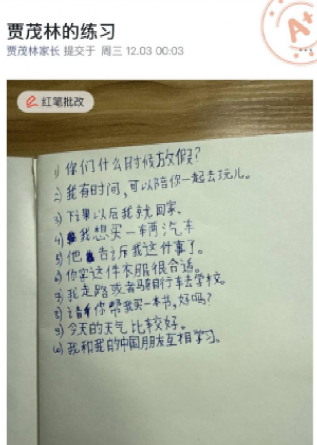 贾茂林的练习
贾茂林家长 提交于 周三 12.03 00:03
A+
红笔批改
1) 你们什么时候放假?
2) 我有时间,可以陪你一起去玩儿。
3) 下课以后我就回家。
4) 我想买一辆汽车
5) 他告诉我这件事了。
6) 你穿这件衣服很合适。
7) 我走路或者骑自行车去学校。
8) 请你帮我买一本书,好吗?
9) 今天的天气比较好。
10) 我和我的中国朋友互相学习。